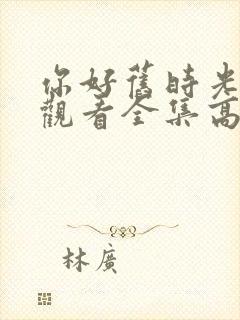 你好舊時光
觀看全集高
林廣